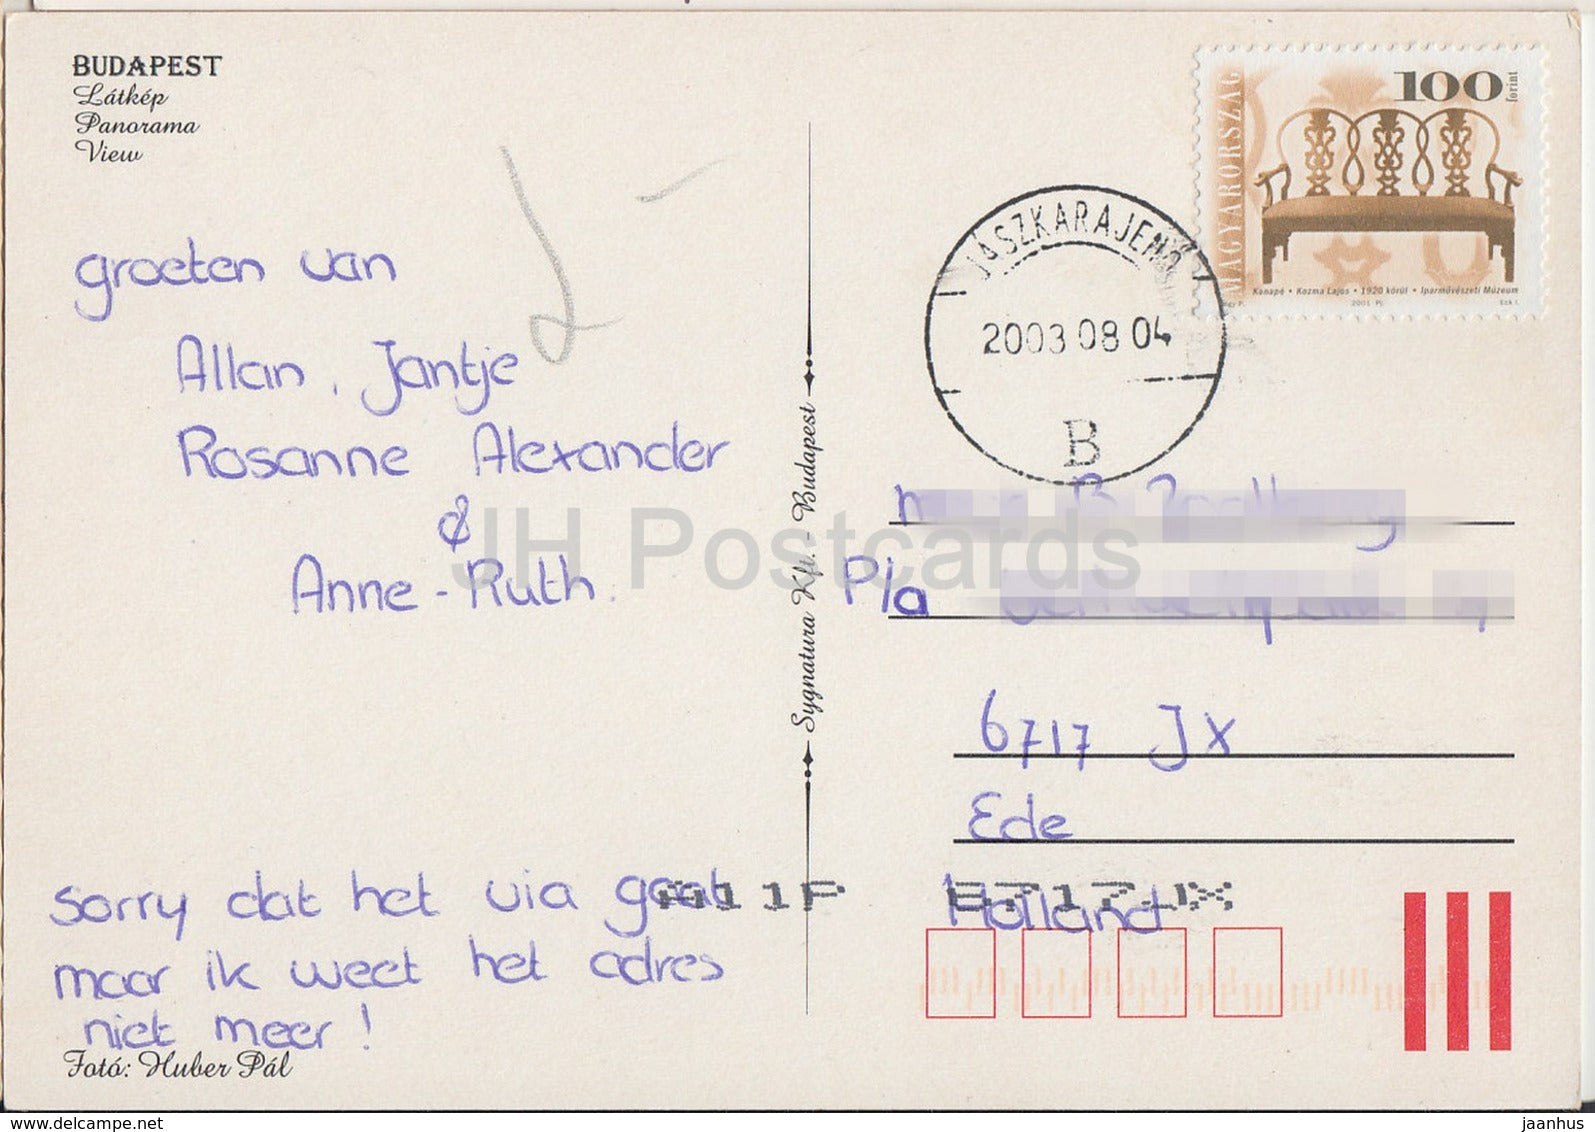 BUDAPEST
Látkép
Panorama
View
groeten van
Allan, Jantje
Rosanne Alexander
&
Anne-Ruth.
sorry dat het via gaat
maar ik weet het adres
niet meer!
Fotó: Huber Pál
Sygnatura Kft. - Budapest
JH Postcards
MAGYARORSZÁG
100
forint
Kanapé • Kozma Lajos • 1920 körül • Iparművészeti Múzeum
2001
JÁSZKARAJENŐ
2003 08 04
B
P/a
6717 JX
Ede
Holland
11P 6717JX
delcampe.net
jaanhus